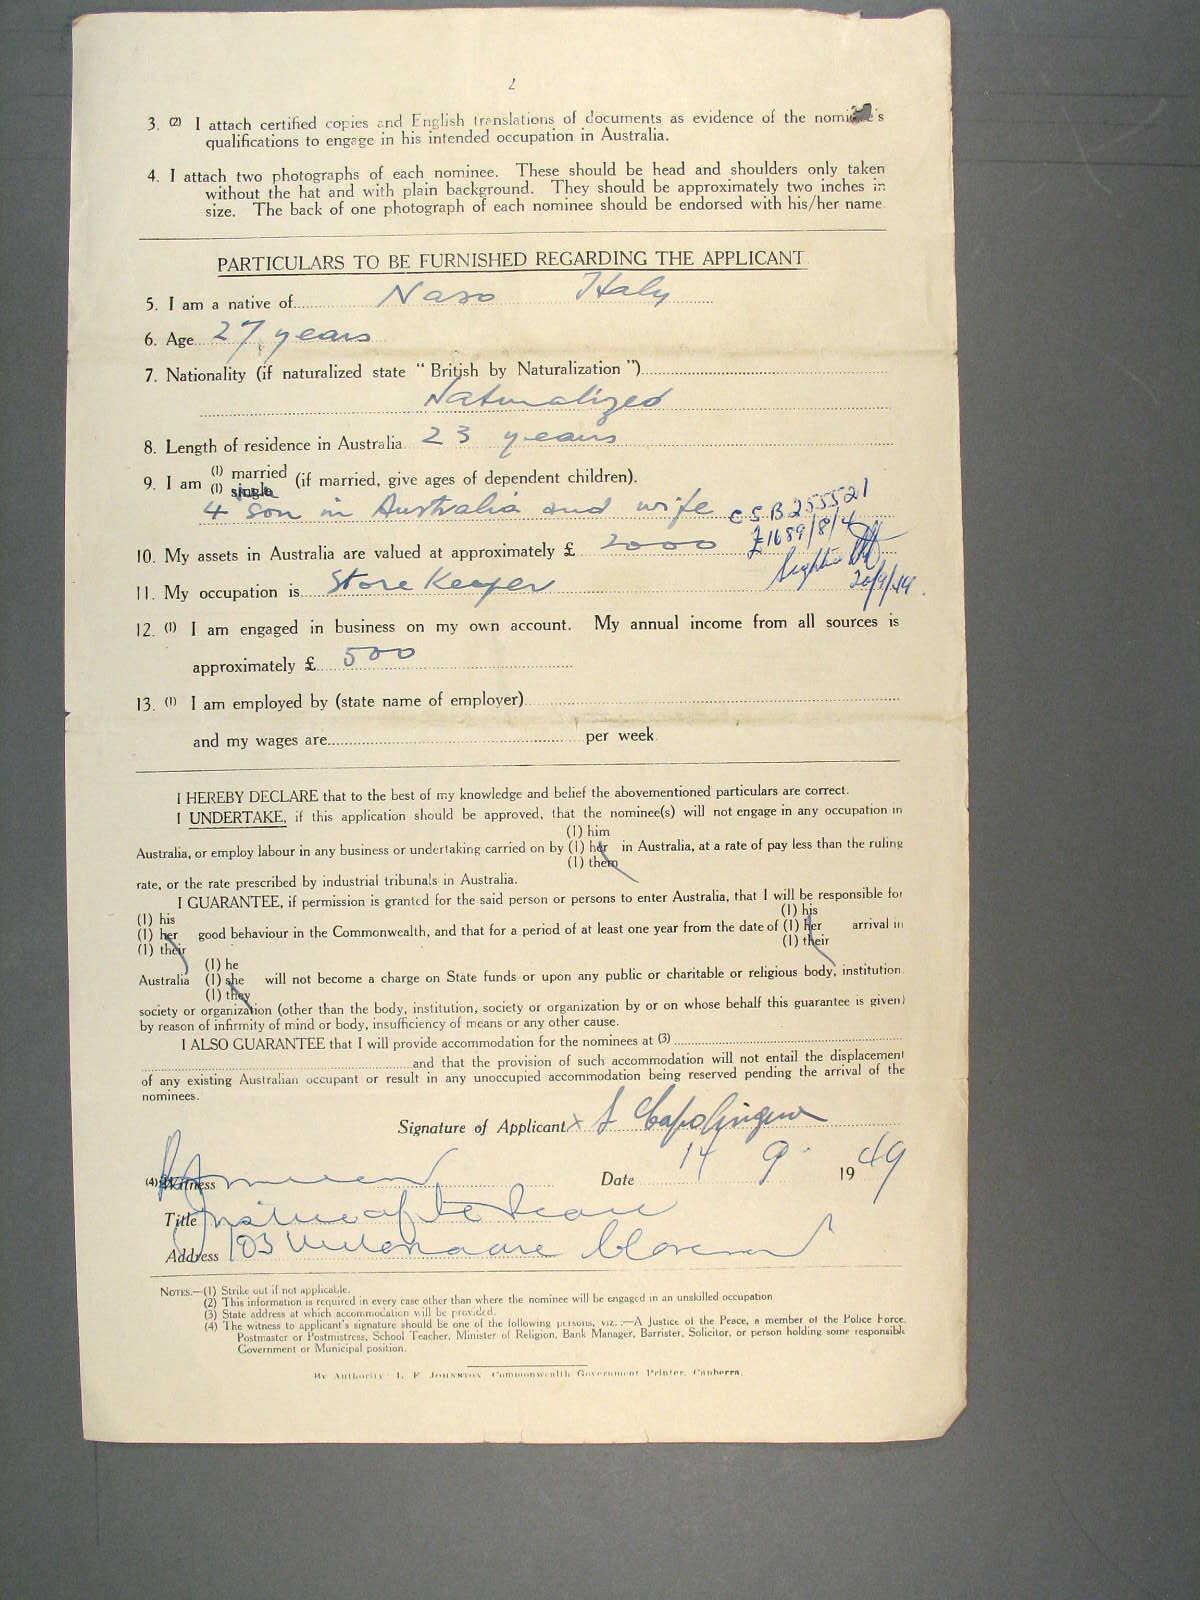 2
3. (2) I attach certified copies and English translations of documents as evidence of the nominee's
qualifications to engage in his intended occupation in Australia.
4. I attach two photographs of each nominee. These should be head and shoulders only taken
without the hat and with plain background. They should be approximately two inches in
size. The back of one photograph of each nominee should be endorsed with his/her name
PARTICULARS TO BE FURNISHED REGARDING THE APPLICANT
5. I am a native of Naso Italy
6. Age 27 years
7. Nationality (if naturalized state "British by Naturalization")
Naturalized
8. Length of residence in Australia 23 years
9. I am (1) married
(1) single (if married, give ages of dependent children).
4 son in Australia and wife
CSB255521
£1689/8/4
20/9/49
10. My assets in Australia are valued at approximately £ 2000
11. My occupation is Store Keeper
12. (1) I am engaged in business on my own account. My annual income from all sources is
approximately £ 500
13. (1) I am employed by (state name of employer)
and my wages are per week
I HEREBY DECLARE that to the best of my knowledge and belief the abovementioned particulars are correct.
I UNDERTAKE, if this application should be approved, that the nominee(s) will not engage in any occupation in
(1) him
Australia, or employ labour in any business or undertaking carried on by (1) her in Australia, at a rate of pay less than the ruling
(1) them
rate, or the rate prescribed by industrial tribunals in Australia.
I GUARANTEE, if permission is granted for the said person or persons to enter Australia, that I will be responsible for
(1) his (1) his
(1) her good behaviour in the Commonwealth, and that for a period of at least one year from the date of (1) her arrival in
(1) their (1) their
(1) he
Australia (1) she will not become a charge on State funds or upon any public or charitable or religious body, institution
(1) they
society or organization (other than the body, institution, society or organization by or on whose behalf this guarantee is given)
by reason of infirmity of mind or body, insufficiency of means or any other cause.
I ALSO GUARANTEE that I will provide accommodation for the nominees at (3)
and that the provision of such accommodation will not entail the displacement
of any existing Australian occupant or result in any unoccupied accommodation being reserved pending the arrival of the
nominees.
Signature of Applicant x
(4) Witness Date 14 9 1949
Title Justice of the Peace
Address 103
NOTES.—(1) Strike out if not applicable.
(2) This information is required in every case other than where the nominee will be engaged in an unskilled occupation
(3) State address at which accommodation will be provided.
(4) The witness to applicant's signature should be one of the following persons, viz.:—A Justice of the Peace, a member of the Police Force,
Postmaster or Postmistress, School Teacher, Minister of Religion, Bank Manager, Barrister, Solicitor, or person holding some responsible
Government or Municipal position.
By Authority: L. F. JOHNSTON, Commonwealth Government Printer, Canberra.